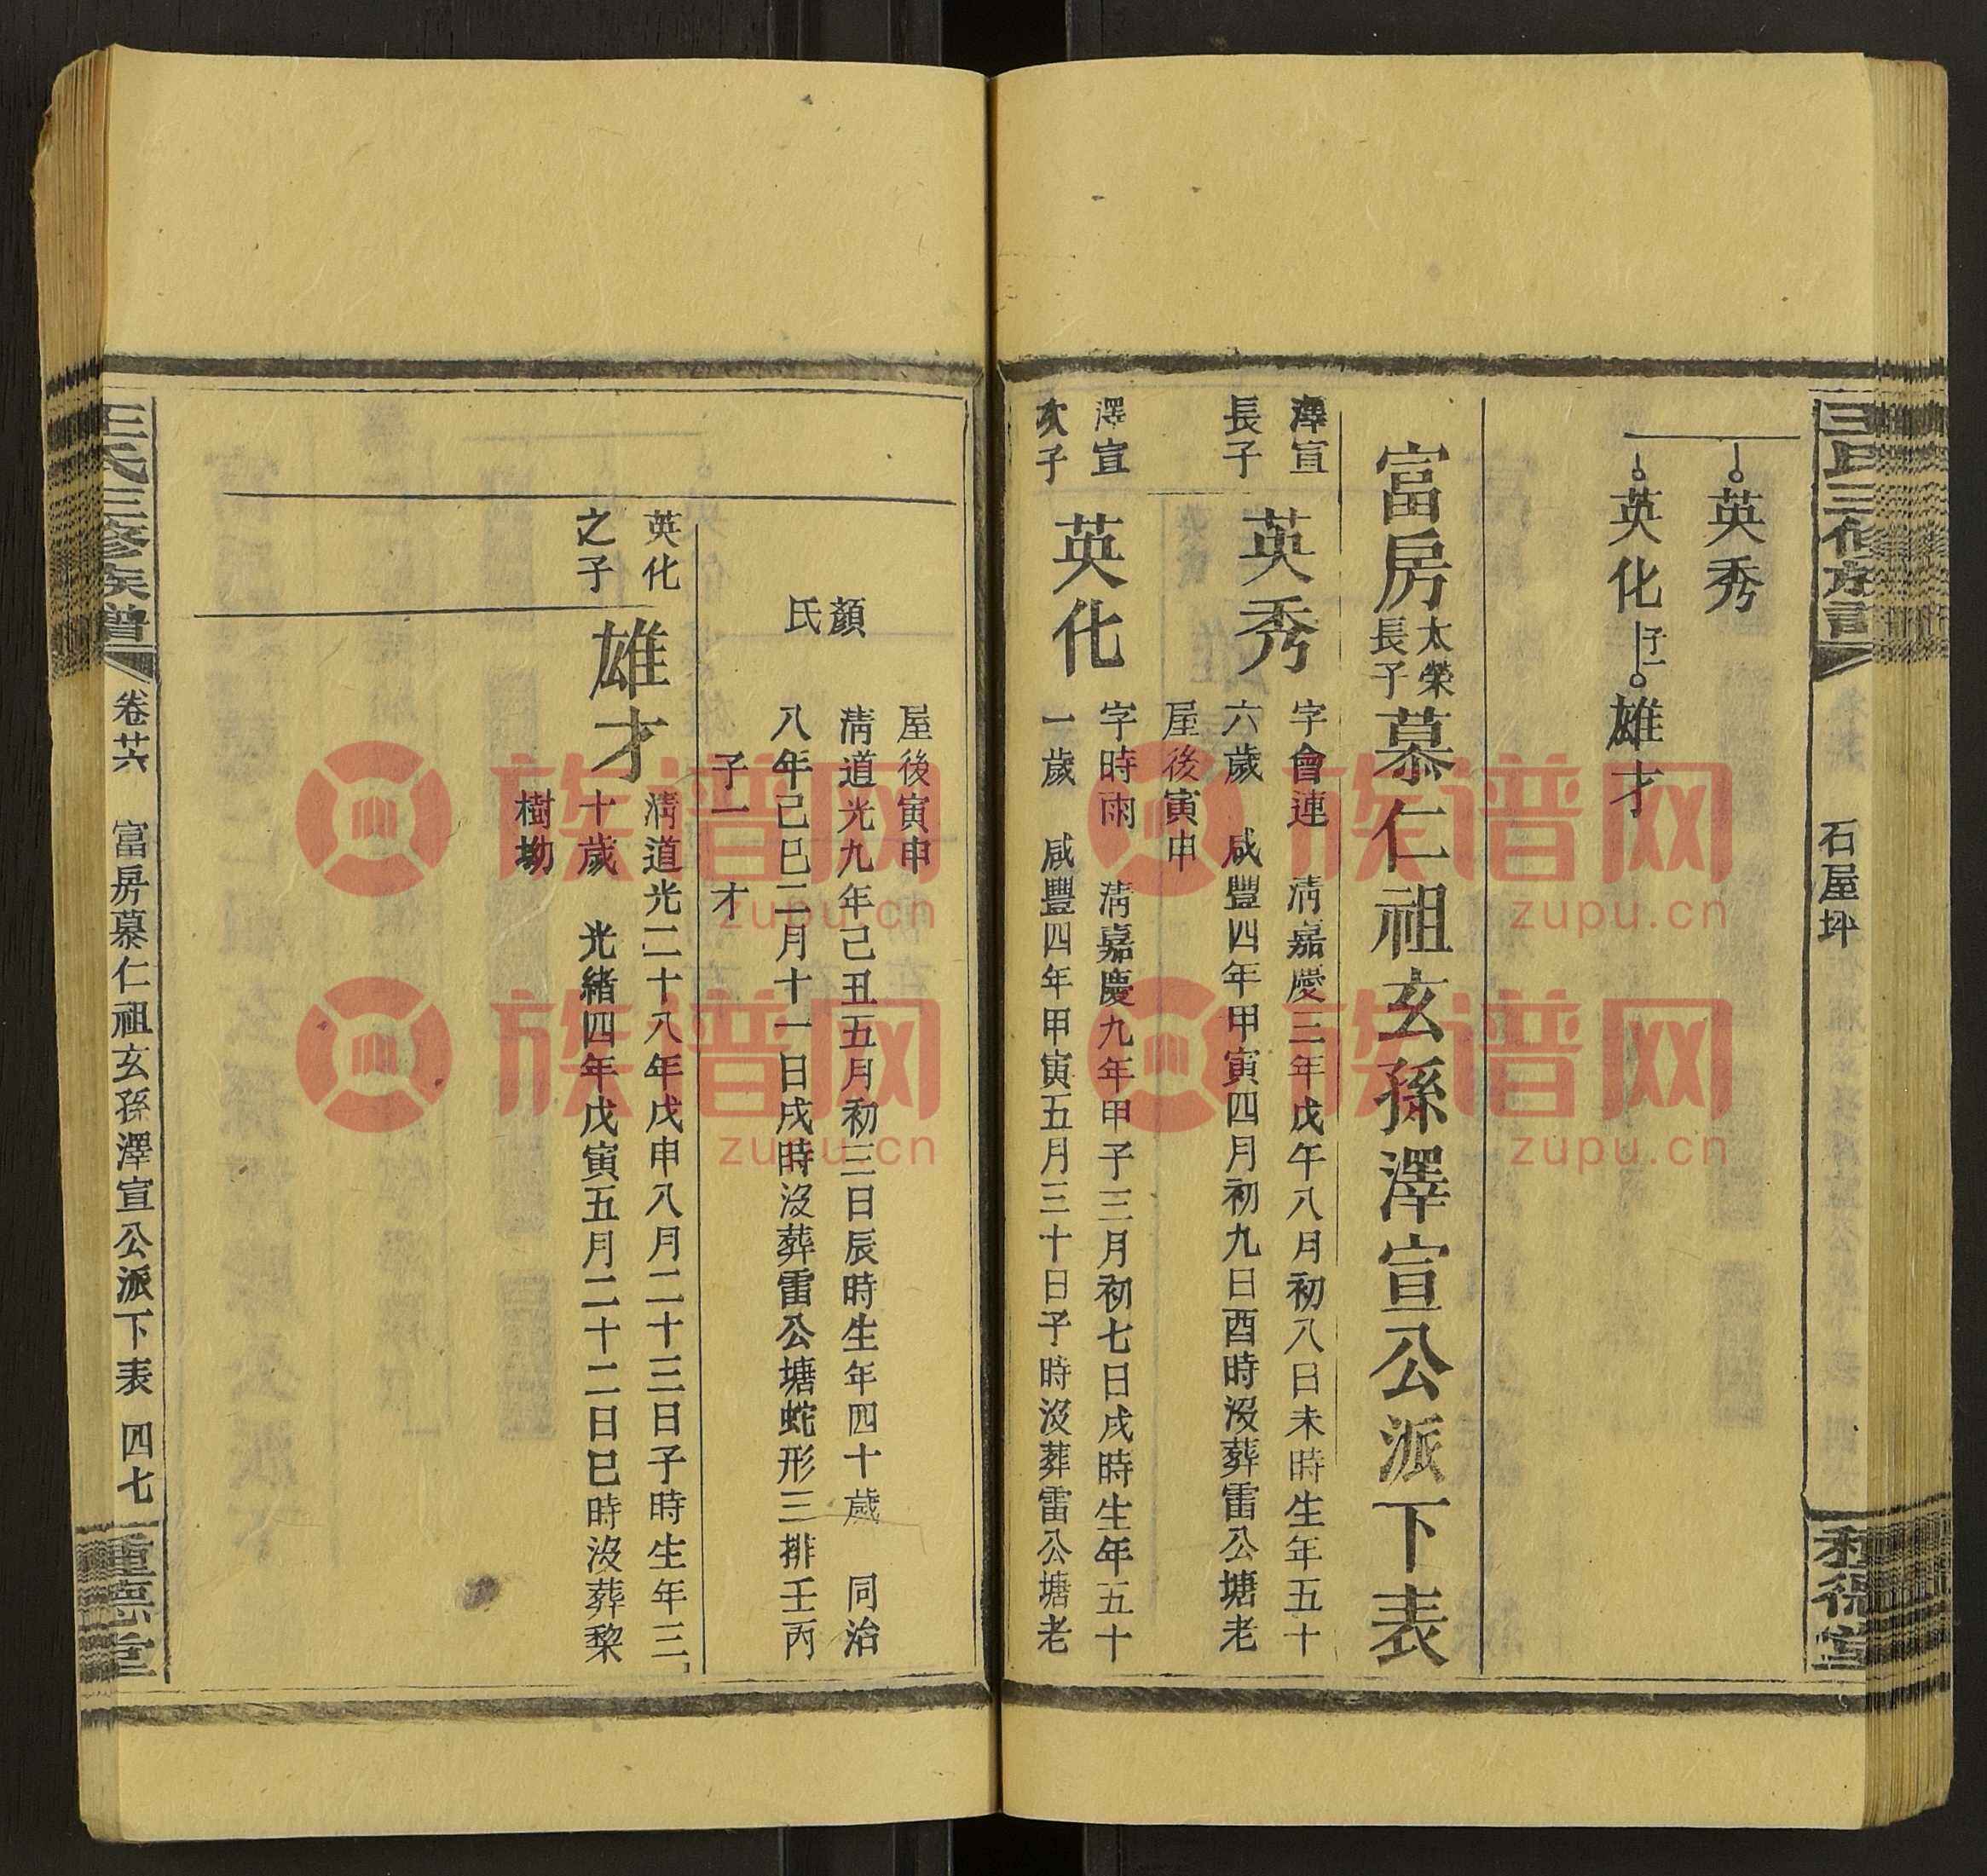 石屋坪
英秀
英化 子一 雄才
富房 太榮長子 慕仁祖玄孫澤宣公派下表
澤宣長子
英秀
字會連 淸嘉慶三年戊午八月初八日未時生年五十
六歲 咸豐四年甲寅四月初九日酉時沒葬雷公塘老
屋後寅申
澤宣次子
英化
字時雨 淸嘉慶九年甲子三月初七日戌時生年五十
一歲 咸豐四年甲寅五月三十日子時沒葬雷公塘老
屋後寅申
顏氏
淸道光九年己丑五月初三日辰時生年四十歲 同治
八年己巳二月十一日戌時沒葬雷公塘蛇形三排壬丙
子一 才
英化之子
雄才
淸道光二十八年戊申八月二十三日子時生年三
十歲 光緒四年戊寅五月二十二日巳時沒葬黎
樹坳
王氏三修族譜
卷廿六
富房慕仁祖玄孫澤宣公派下表
四七
重德堂
族谱网
zupu.cn
族谱网
zupu.cn
族谱网
zupu.cn
族谱网
zupu.cn